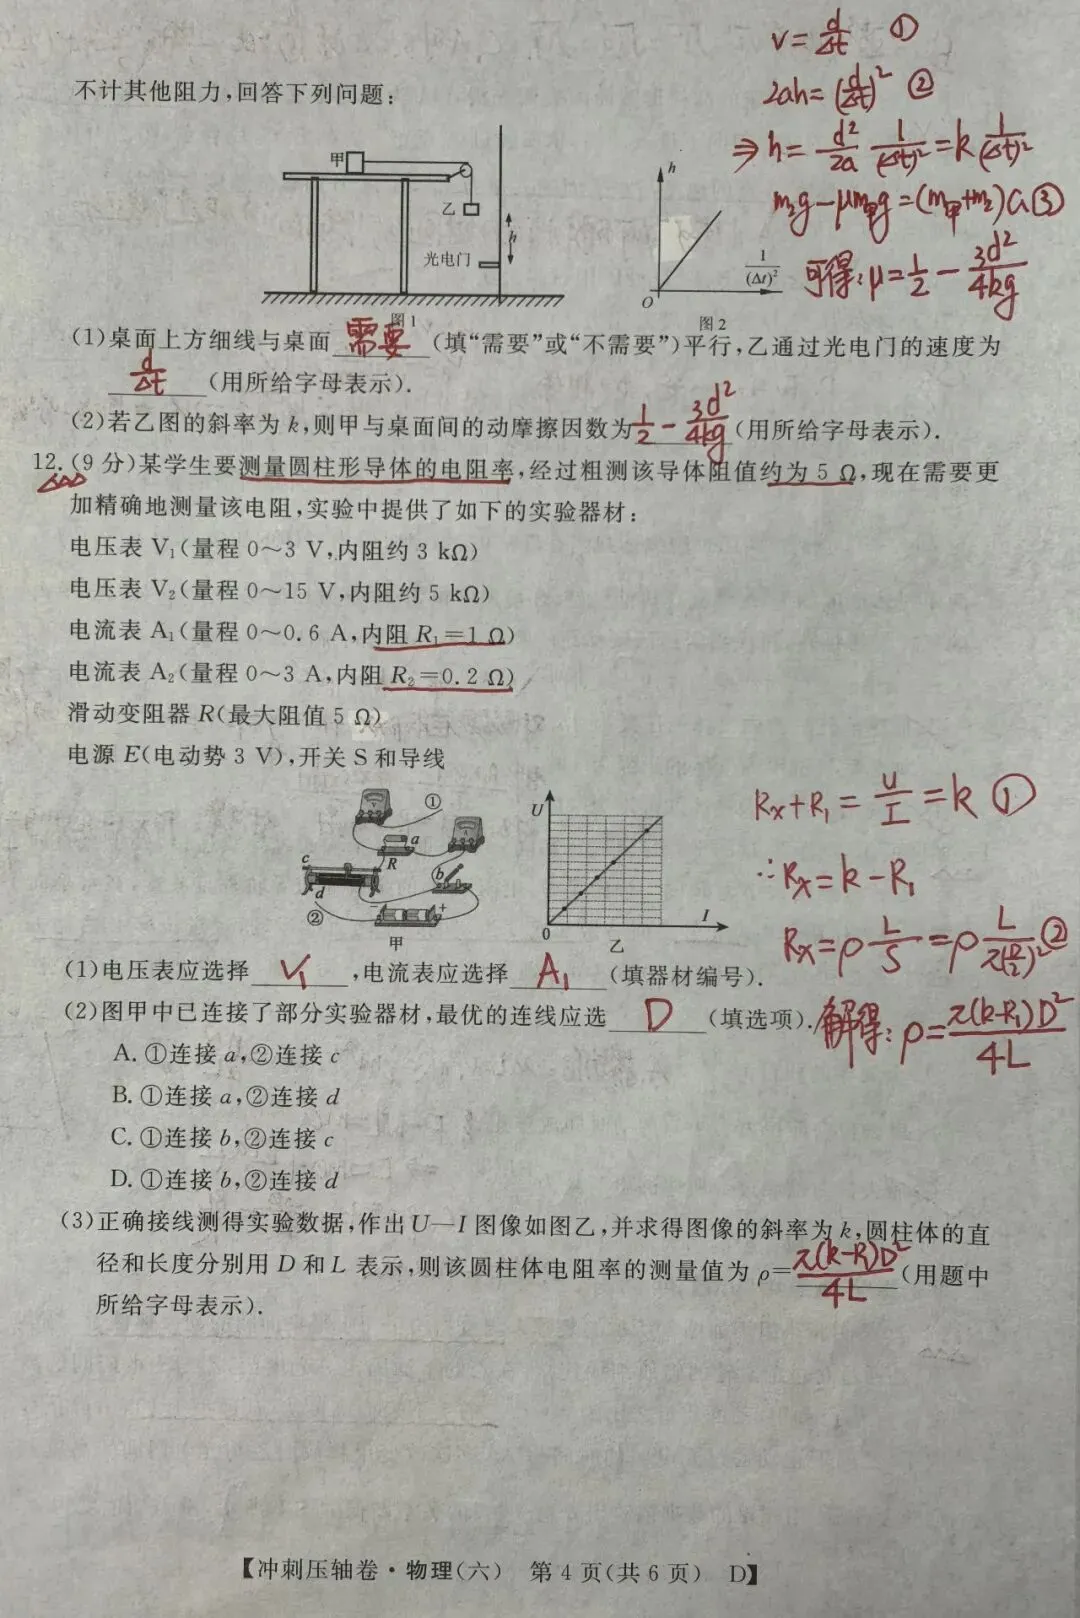 v=d/Δt ①
不计其他阻力,回答下列问题:
2ah=(d/Δt)² ②
⇒h=d²/2a 1/(Δt)²=k 1/(Δt)²
m₂g-μm甲g=(m甲+m₂)a③
可得:μ=1/2-3d²/4kg
甲
乙
h
光电门
图1
h
1/(Δt)²
O
图2
(1)桌面上方细线与桌面 需要 (填“需要”或“不需要”)平行,乙通过光电门的速度为
d/Δt (用所给字母表示).
(2)若乙图的斜率为k,则甲与桌面间的动摩擦因数为1/2-3d²/4kg(用所给字母表示).
12.(9分)某学生要测量圆柱形导体的电阻率,经过粗测该导体阻值约为5 Ω,现在需要更
加精确地测量该电阻,实验中提供了如下的实验器材:
电压表V₁(量程0~3 V,内阻约3 kΩ)
电压表V₂(量程0~15 V,内阻约5 kΩ)
电流表A₁(量程0~0.6 A,内阻R₁=1 Ω)
电流表A₂(量程0~3 A,内阻R₂=0.2 Ω)
滑动变阻器R(最大阻值5 Ω)
电源E(电动势3 V),开关S和导线
①
a
c
R
b
d
②
- +
甲
U
0
I
乙
Rx+R₁=U/I=k ①
∴Rx=k-R₁
Rx=ρL/S=ρL/π(D/2)²②
解得:ρ=π(k-R₁)D²/4L
(1)电压表应选择 V₁ ,电流表应选择 A₁ (填器材编号).
(2)图甲中已连接了部分实验器材,最优的连线应选 D (填选项).
A.①连接a,②连接c
B.①连接a,②连接d
C.①连接b,②连接c
D.①连接b,②连接d
(3)正确接线测得实验数据,作出U—I图像如图乙,并求得图像的斜率为k,圆柱体的直
径和长度分别用D和L表示,则该圆柱体电阻率的测量值为ρ=π(k-R₁)D²/4L(用题中
所给字母表示).
【冲刺压轴卷·物理(六) 第4页(共6页) D】